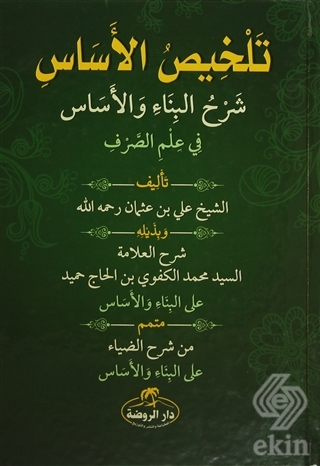 تَلْخِيصُ الأَسَاسِ
شَرْحُ البِنَاءِ وَالأَسَاس
فِي عِلْمِ الصَّرْفِ
تَأْلِيف
الشيخ علي بن عثمان رحمه الله
وَبِذَيْلِهِ
شرح العلامة
السيد محمد الكفوي بن الحاج حميد
على البِنَاءِ وَالأَسَاس
متمم
من شرح الضياء
على البِنَاءِ وَالأَسَاس
دار الروضة
ekin